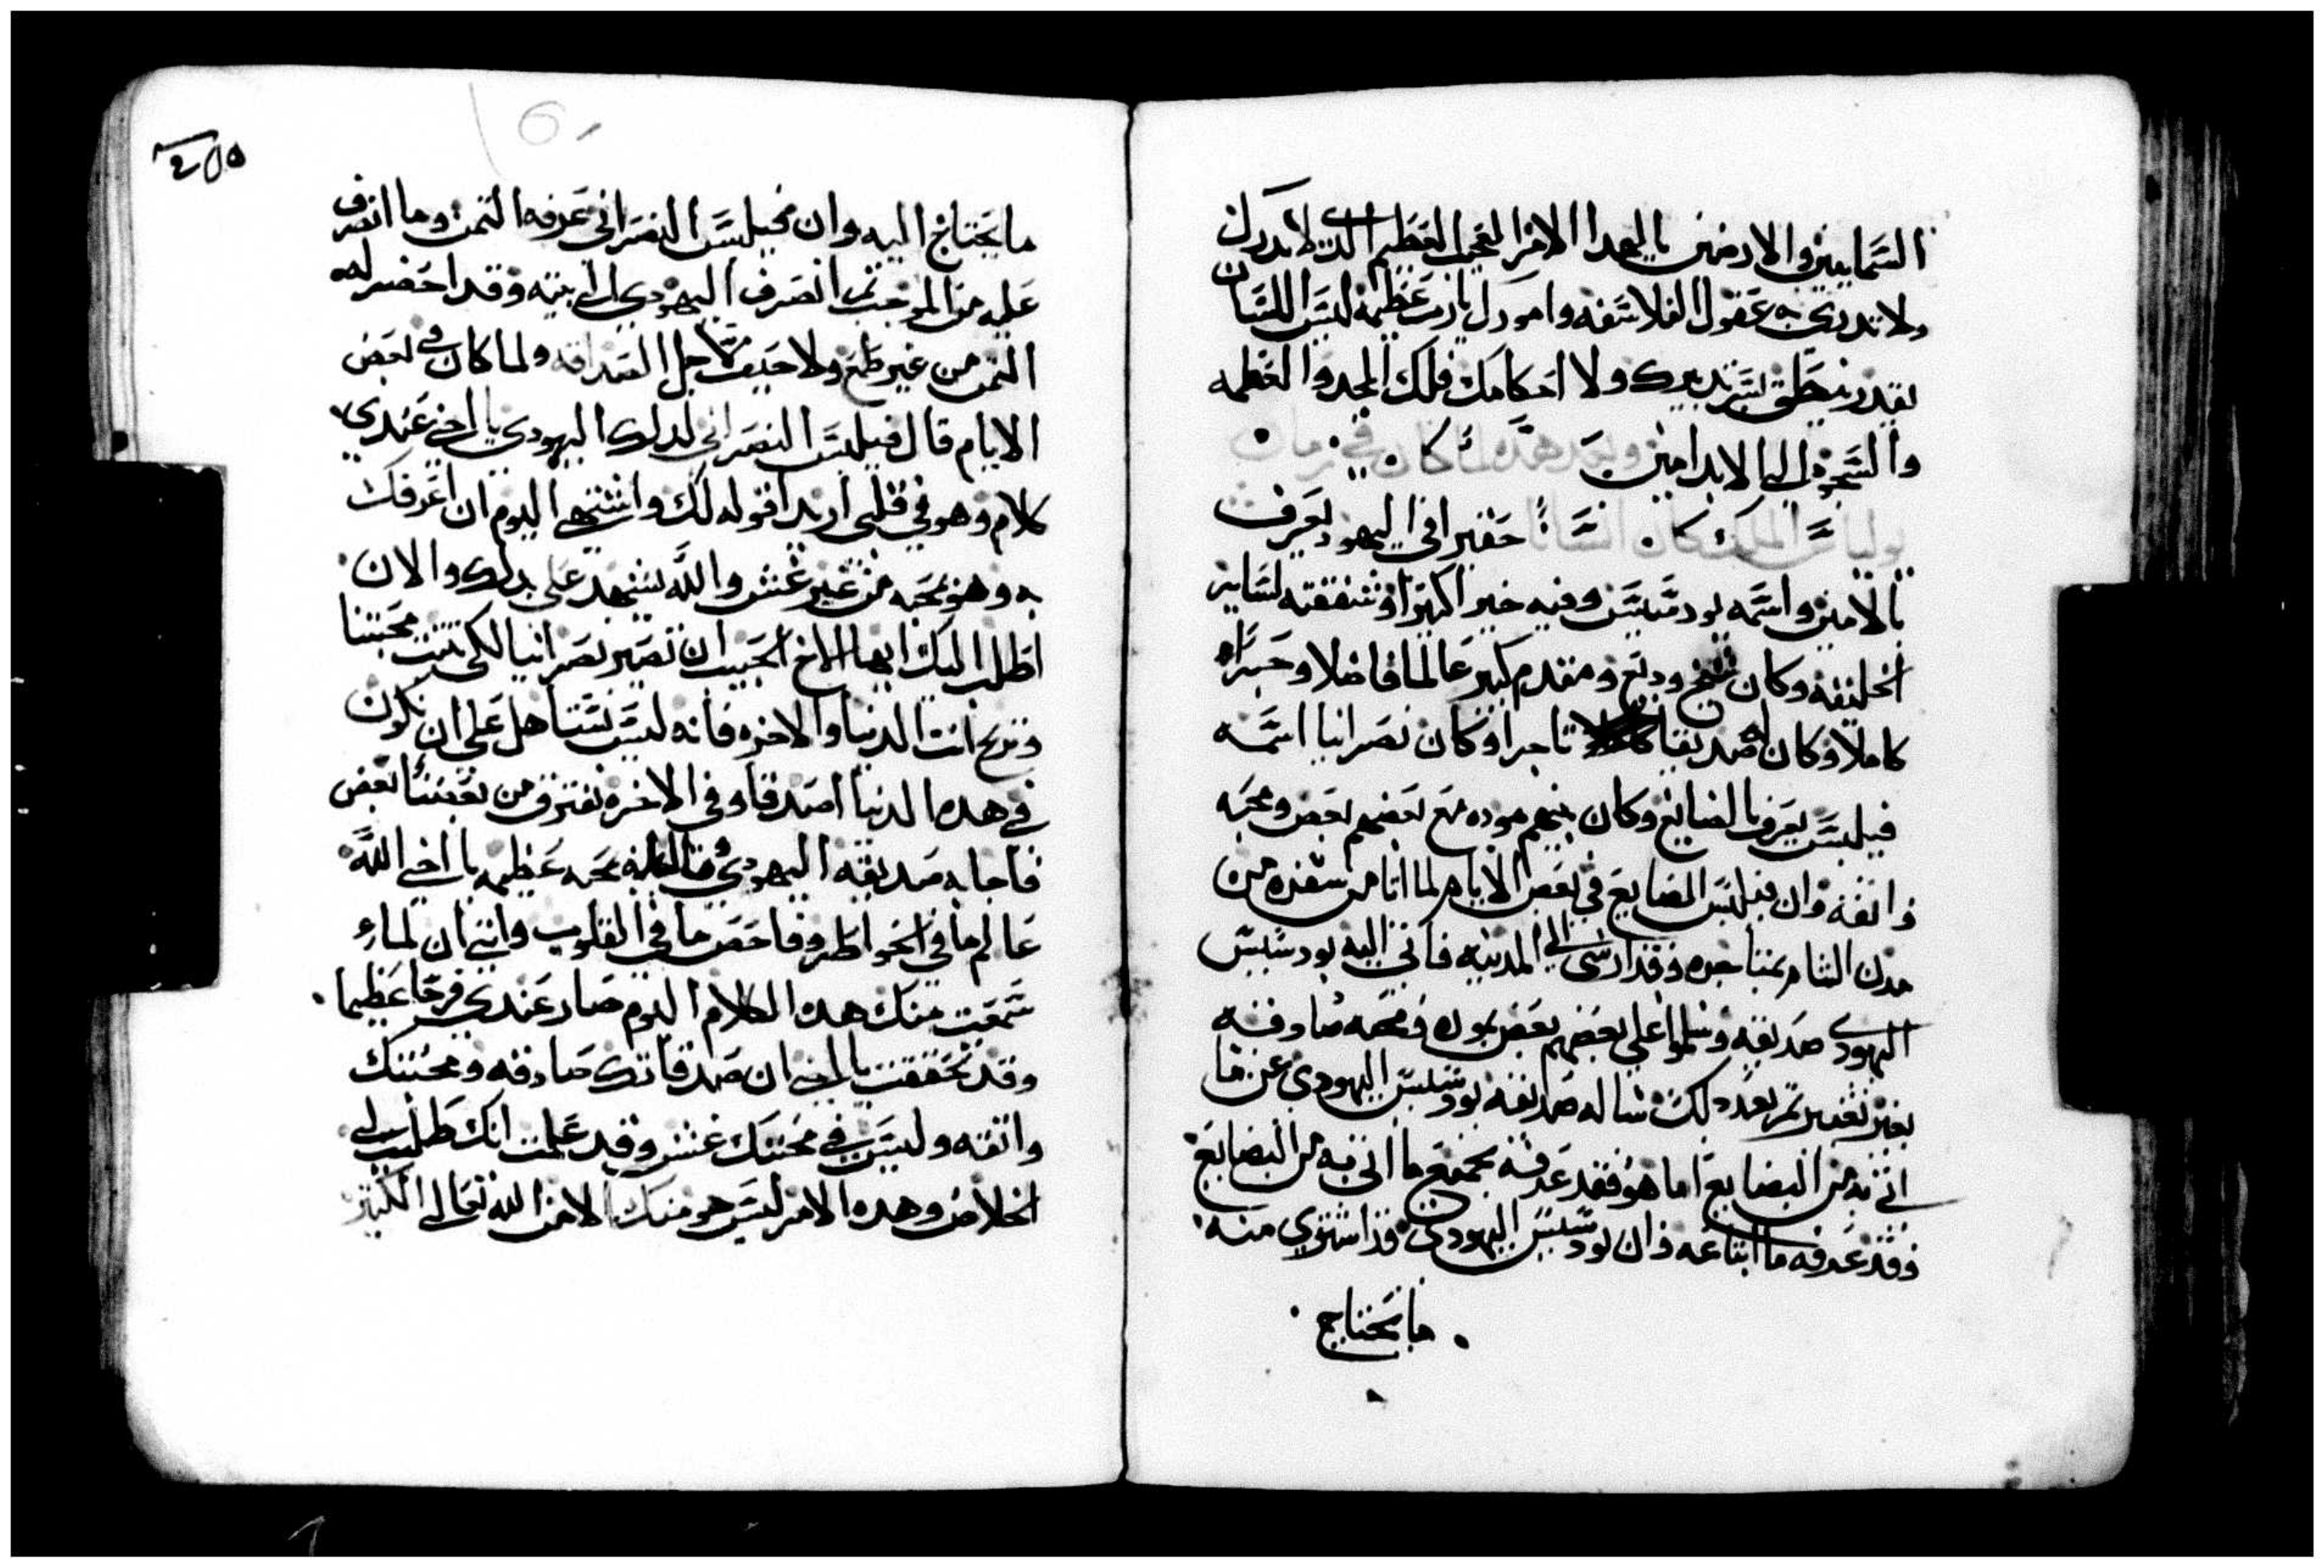 السمايين والارضين يا لهدا الامر العجيب العظيم الدي لا تدركه
ولا تدري به عقول الفلاسفه وامورك يا رب عظيمه ليس اللسان
يقدر ينطق بسر تدبيرك ولا احكامك فلك المجد والعظمه
والسجود الي الابد امين وبعد هده لما كان في زمان
يولياس الملك كان انسانا حقيرا في اليهود يعرف
بالامين واسمه بودسيس وفيه خير اكثيرا وشفقته لساير
الخليقه وكان شيخ وديع ومقدم كبير عالما فاضلا وحبرا
كاملا وكان له صديقا تاجرا وكان نصرانيا اسمه
فيلبس يعرف بالضايع وكان بينهم موده مع بعضهم بعض ومحبه
واثقه وان فيلبس الضايع في بعض الايام لما اتا من سفره من
مدن الشام بمتاجره وقد ارسى الي المدينه فاتي اليه بودسيس
اليهودي صديقه وسلموا علي بعضهم بعض بموده ومحبه صادقه
بغير تغير ثم بعد دلك ساله صديقه بودسيس اليهودي عن ما
اتي به من البضايع اما هو فقد عرفه بجميع ما اتي به من البضايع
وقد عرفه ما ابتاعه وان بودسيس اليهودي قد اشتري منه
ما يحتاج
٢٥٥
ما يحتاج اليه وان فيلبس النصراني عرفه التمن وما انصرف
عليه من الموجب تم انصرف اليهودي الي بيته وقد احضر له
التمن من غير طمع ولا حيف لاجل الصداقه ولما كان في بعض
الايام قال فيلبس النصراني لدلك اليهودي يا اخي عندي
كلام وهو في قلبي اريد اقوله لك واشتهي اليوم ان اعرفك
به وهو بمحبه من غير غش والله يشهد علي دلك والان
اطلب اليك ايها الاخ الحبيب ان تصير نصرانيا لكي تثبت محبتنا
وتربح انت الدنيا والاخره فانه ليس نستاهل علي ان نكون
في هده الدنيا اصدقا وفي الاخره نفترق من بعضنا بعض
فاجابه صديقه اليهودي وقال له بمحبه عظيمه يا اخي الله
عالم ما في الخواطر وفاحص ما في القلوب وانني ان لما
سمعت منك هده الكلام اليوم صار عندي فرحا عظيما
وقد تحققت يا اخي ان صداقتك صادقه ومحبتك
واثقه وليس في محبتك غش وقد علمت انك طلبت لي
الخلاص وهده الامر ليس هو منك الا من الله تعالي الكبير